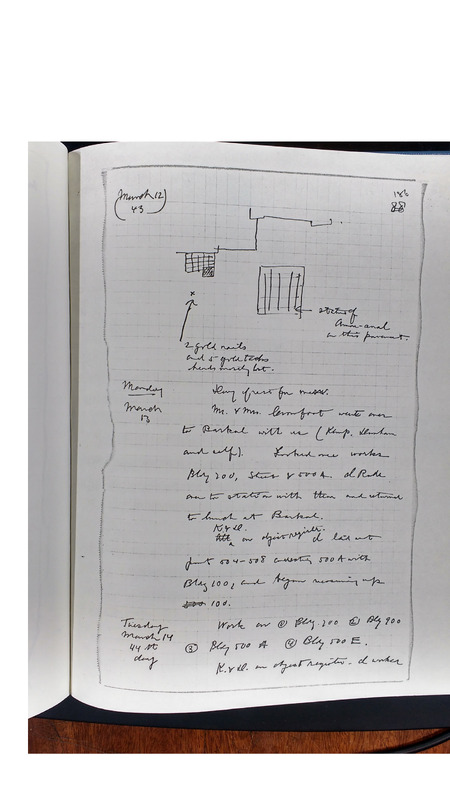 (March 12)
43
88
statue of
Aman-anal
in this pavement.
2 gold nails
and 5 gold tacks
heads mostly bent.
Monday
March
13
Day of rest for men.
Mr. & Mrs. Crowfoot went over
to Barkal with us (Kemp, Dunham
and self). Looked over works
Bldg 200, & 500 A. Rode
over to station with them and returned
to lunch at Barkal.
K & D.
on object register. laid out
504-508 500 A with
Bldg 100, and began up
100.
Tuesday
March 14
44 th
day
Work on ① Bldg. 200 ② Bldg 900
③ Bldg 500 A ④ Bldg 500 E.
K. & D. on object register. worked